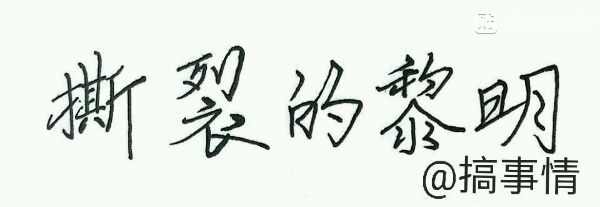 撕裂的黎明
@搞事情